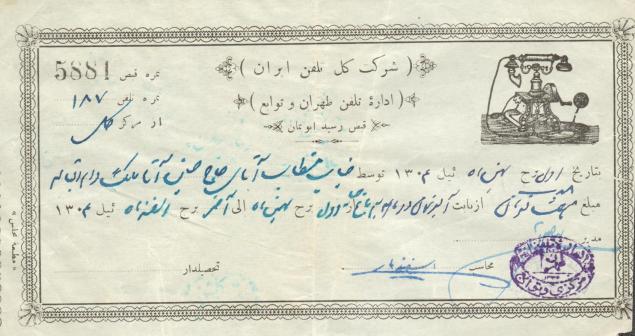 شرکت کل تلفن ایران
( ادارهٔ تلفن طهران و توابع )
قبض رسید ابونمان
نمره قبض 5881
نمره تلفن ۱۸۷
از مرکز کل
بتاریخ اول برج بهمن ماه ئیل ۱۳۰۴ توسط جناب مستطاب آقای حاج حسین آقا ملک دام اقباله
مبلغ قران از بابت آبونمان دو ماهه از اول برج بهمن ماه الی آخر برج اسفند ماه ئیل ۱۳۰۴
مدیر
محاسب
تحصیلدار
« مطبعه مجلس »